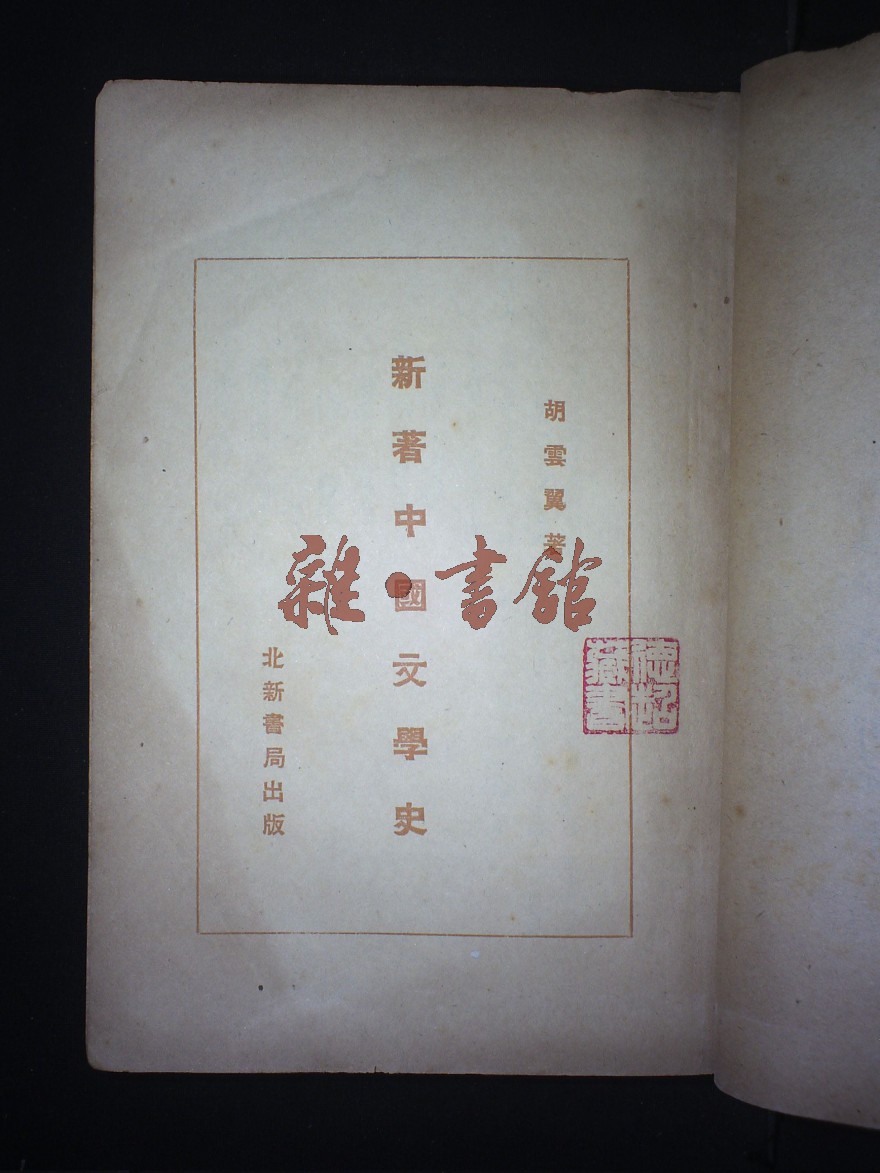 胡雲翼著
新著中國文學史
北新書局出版
雜·書館
德超
藏書